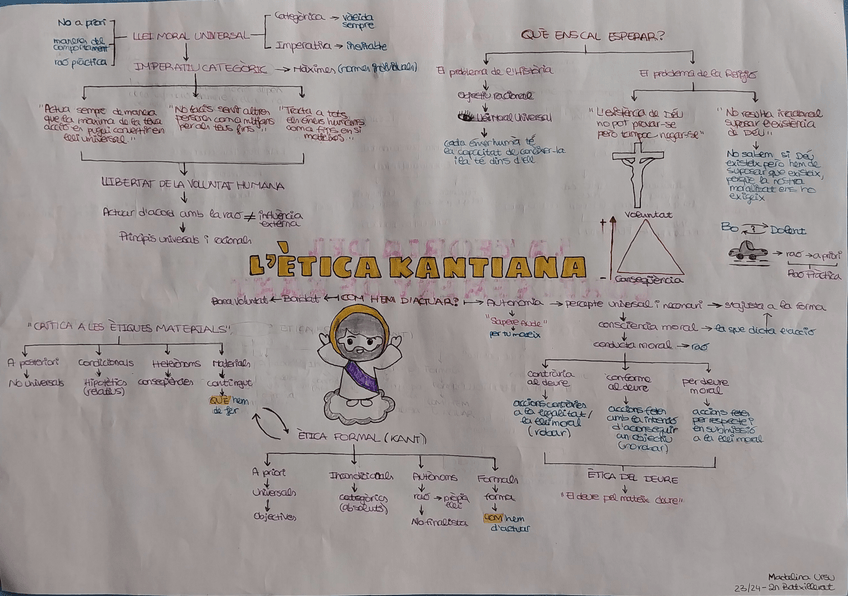 No a priori
manera del
comportament
raó pràctica
LLEI MORAL UNIVERSAL
Categòrica → vàlida
sempre
Imperativa →
IMPERATIU CATEGÒRIC → Màximes (normes individuals)
"Actua sempre de manera
que la màxima de la teva
acció es pugui convertir en
llei universal."
"No facis servir altres
persones com a mitjans
per als teus fins."
"Tracta a tots
els éssers humans
com a fins en si
mateixos"
LLIBERTAT DE LA VOLUNTAT HUMANA
Actuar d'acord amb la raó ≠ influència
externa
Principis universals i racionals
QUÈ ENS CAL ESPERAR?
El problema de l'Història
objectiu racional
Llei moral universal
cada ésser humà té
la capacitat de conèixer-la
i la té dins d'ell
El problema de la Religió
"L'existència de DÉU
no pot provar-se
però tampoc negar-se"
"No resulta irracional
suposar l'existència
de DÉU"
No sabem si Déu
existeix però hem de
suposar que existeix,
perquè la nostra
moralitat ens ho
exigeix
Voluntat
+
-
Conseqüència
Bo
?
Dolent
→ raó → a priori
Raó Pràctica
L'ÈTICA KANTIANA
Bona voluntat ← Bondat ← COM HEM D'ACTUAR? → Autonomia → percepte universal i necessari → s'ajusta a la forma
"Sapere Aude"
per tu mateix
consciència moral → la que dicta l'acció
conducta moral → raó
contrària
al deure
accions contràries
a la legalitat/
a la llei moral
(robar)
conforme
al deure
accions fetes
amb la intenció
d'aconseguir
un objectiu
(no robar)
per deure
moral
accions fetes
per respecte i
en submissió
a la llei moral
ÈTICA DEL DEURE
"El deure pel mateix deure"
"CRÍTICA A LES ÈTIQUES MATERIALS"
A posteriori
No universals
Condicionals
Hipotètics
(relatius)
Heterònoms
conseqüències
Materials
contingut
QUÈ hem
de fer
ÈTICA FORMAL (KANT)
A priori
Universals
Objectives
Incondicionals
categòrics
(absoluts)
Autònoms
raó → pròpia
llei
No finalista
Formals
forma
COM hem
d'actuar
Madalina Ursu
23/24-2n Batxillerat